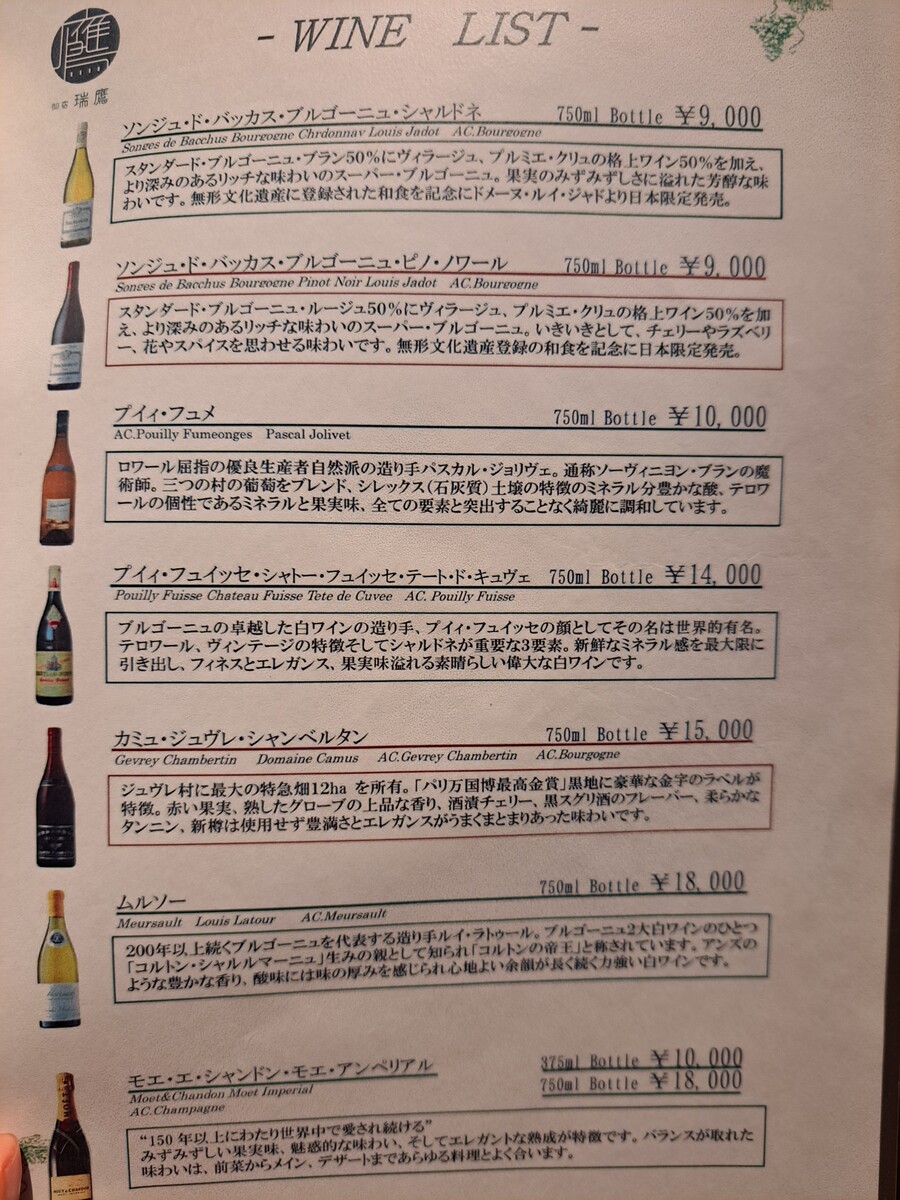 - WINE LIST -
瑞鷹
ソンジュ・ド・バッカス・ブルゴーニュ・シャルドネ 750ml Bottle ¥9,000
Songes de Bacchus Bourgogne Chrdonnay Louis Jadot AC.Bourgogne
スタンダード・ブルゴーニュ・ブラン50%にヴィラージュ、プルミエ・クリュの格上ワイン50%を加え、
より深みのあるリッチな味わいのスーパー・ブルゴーニュ。果実のみずみずしさに溢れた芳醇な味
わいです。無形文化遺産に登録された和食を記念にドメーヌ・ルイ・ジャドより日本限定発売。
ソンジュ・ド・バッカス・ブルゴーニュ・ピノ・ノワール 750ml Bottle ¥9,000
Songes de Bacchus Bourgogne Pinot Noir Louis Jadot AC.Bourgogne
スタンダード・ブルゴーニュ・ルージュ50%にヴィラージュ、プルミエ・クリュの格上ワイン50%を加
え、より深みのあるリッチな味わいのスーパー・ブルゴーニュ。いきいきとして、チェリーやラズベリ
ー、花やスパイスを思わせる味わいです。無形文化遺産登録の和食を記念に日本限定発売。
プイィ・フュメ 750ml Bottle ¥10,000
AC.Pouilly Fumeonges Pascal Jolivet
ロワール屈指の優良生産者自然派の造り手パスカル・ジョリヴェ。通称ソーヴィニヨン・ブランの魔
術師。三つの村の葡萄をブレンド、シレックス(石灰質)土壌の特徴のミネラル分豊かな酸、テロワ
ールの個性であるミネラルと果実味、全ての要素と突出することなく綺麗に調和しています。
プイィ・フュイッセ・シャトー・フュイッセ・テート・ド・キュヴェ 750ml Bottle ¥14,000
Pouilly Fuisse Chateau Fuisse Tete de Cuvee AC. Pouilly Fuisse
ブルゴーニュの卓越した白ワインの造り手、プイィ・フュイッセの顔としてその名は世界的有名。
テロワール、ヴィンテージの特徴そしてシャルドネが重要な3要素。新鮮なミネラル感を最大限に
引き出し、フィネスとエレガンス、果実味溢れる素晴らしい偉大な白ワインです。
カミュ・ジュヴレ・シャンベルタン 750ml Bottle ¥15,000
Gevrey Chambertin Domaine Camus AC.Gevrey Chambertin AC.Bourgogne
ジュヴレ村に最大の特急畑12ha を所有。「パリ万国博最高金賞」黒地に豪華な金字のラベルが
特徴。赤い果実、熟したグローブの上品な香り、酒漬チェリー、黒スグリ酒のフレーバー、柔らかな
タンニン、新樽は使用せず豊満さとエレガンスがうまくまとまりあった味わいです。
ムルソー 750ml Bottle ¥18,000
Meursault Louis Latour AC.Meursault
200年以上続くブルゴーニュを代表する造り手ルイ・ラトゥール。ブルゴーニュ2大白ワインのひとつ
「コルトン・シャルルマーニュ」生みの親として知られ「コルトンの帝王」と称されています。アンズの
ような豊かな香り、酸味には味の厚みを感じられ心地よい余韻が長く続く力強い白ワインです。
モエ・エ・シャンドン・モエ・アンペリアル 375ml Bottle ¥10,000
750ml Bottle ¥18,000
Moet&Chandon Moet Imperial
AC.Champagne
“150 年以上にわたり世界中で愛され続ける”
みずみずしい果実味、魅惑的な味わい、そしてエレガントな熟成が特徴です。バランスが取れた
味わいは、前菜からメイン、デザートまであらゆる料理とよく合います。